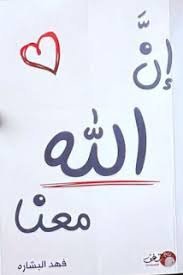 إنَّ
الله
معنا
فهد البشاره